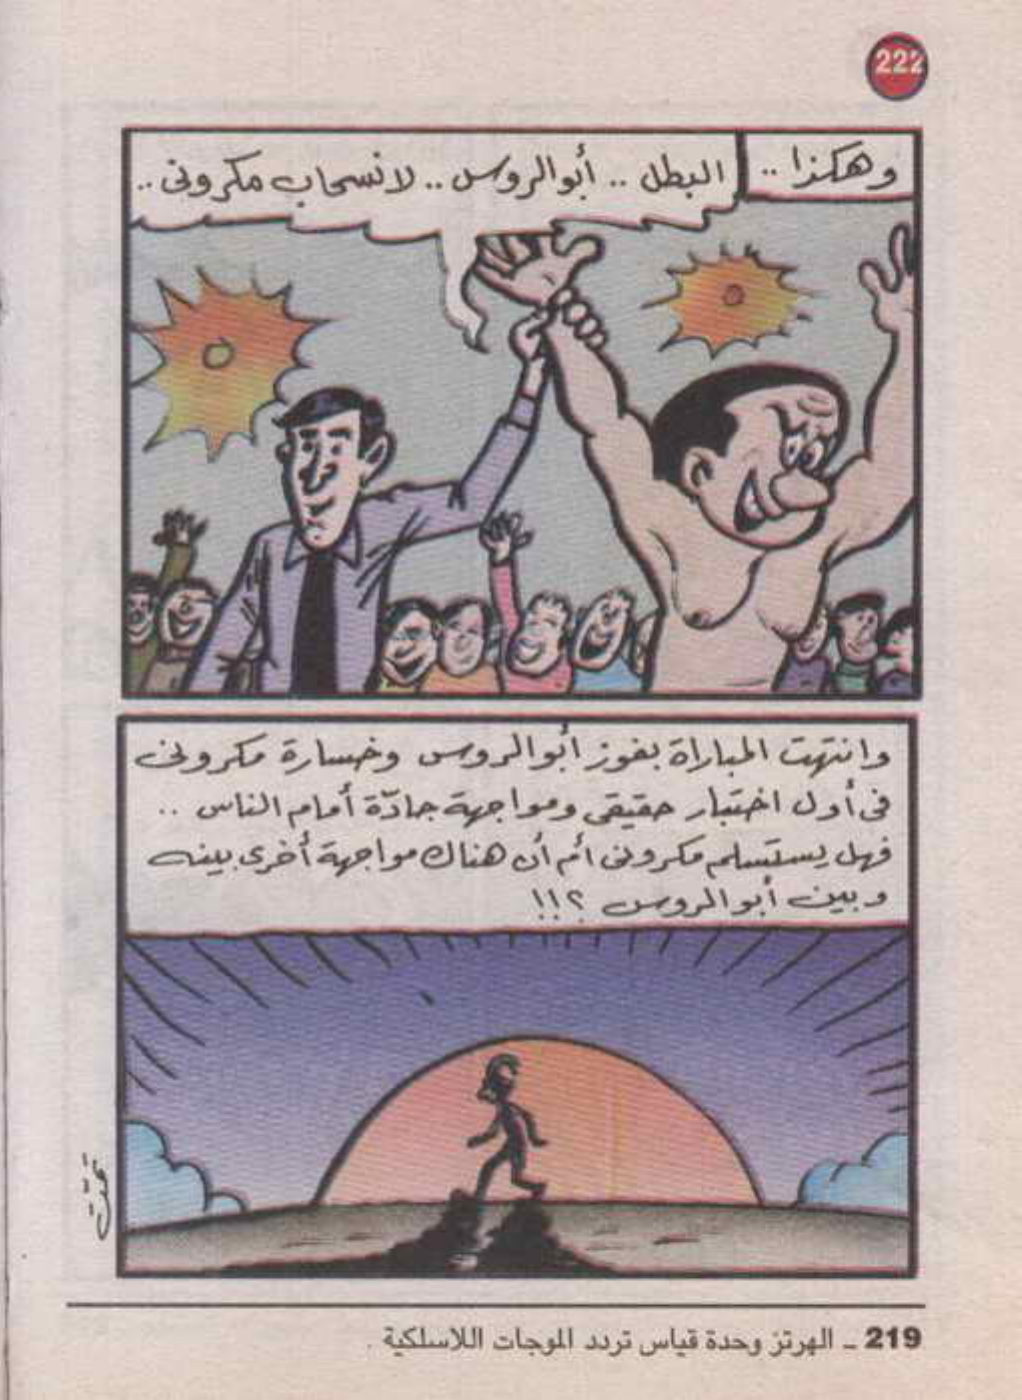 222
وهكذا ..
البطل .. أبو الروس .. لانسحاب مكرونى ..
وانتهت المباراة بفوز أبو الروس وخسارة مكرونى
فى أول اختبار حقيقى ومواجهة جادّة أمام الناس ..
فهل يستسلم مكرونى أم أن هناك مواجهة أخرى بينه
وبين أبو الروس ؟!!
تمت
219 ـ الهرتز وحدة قياس تردد الموجات اللاسلكية .